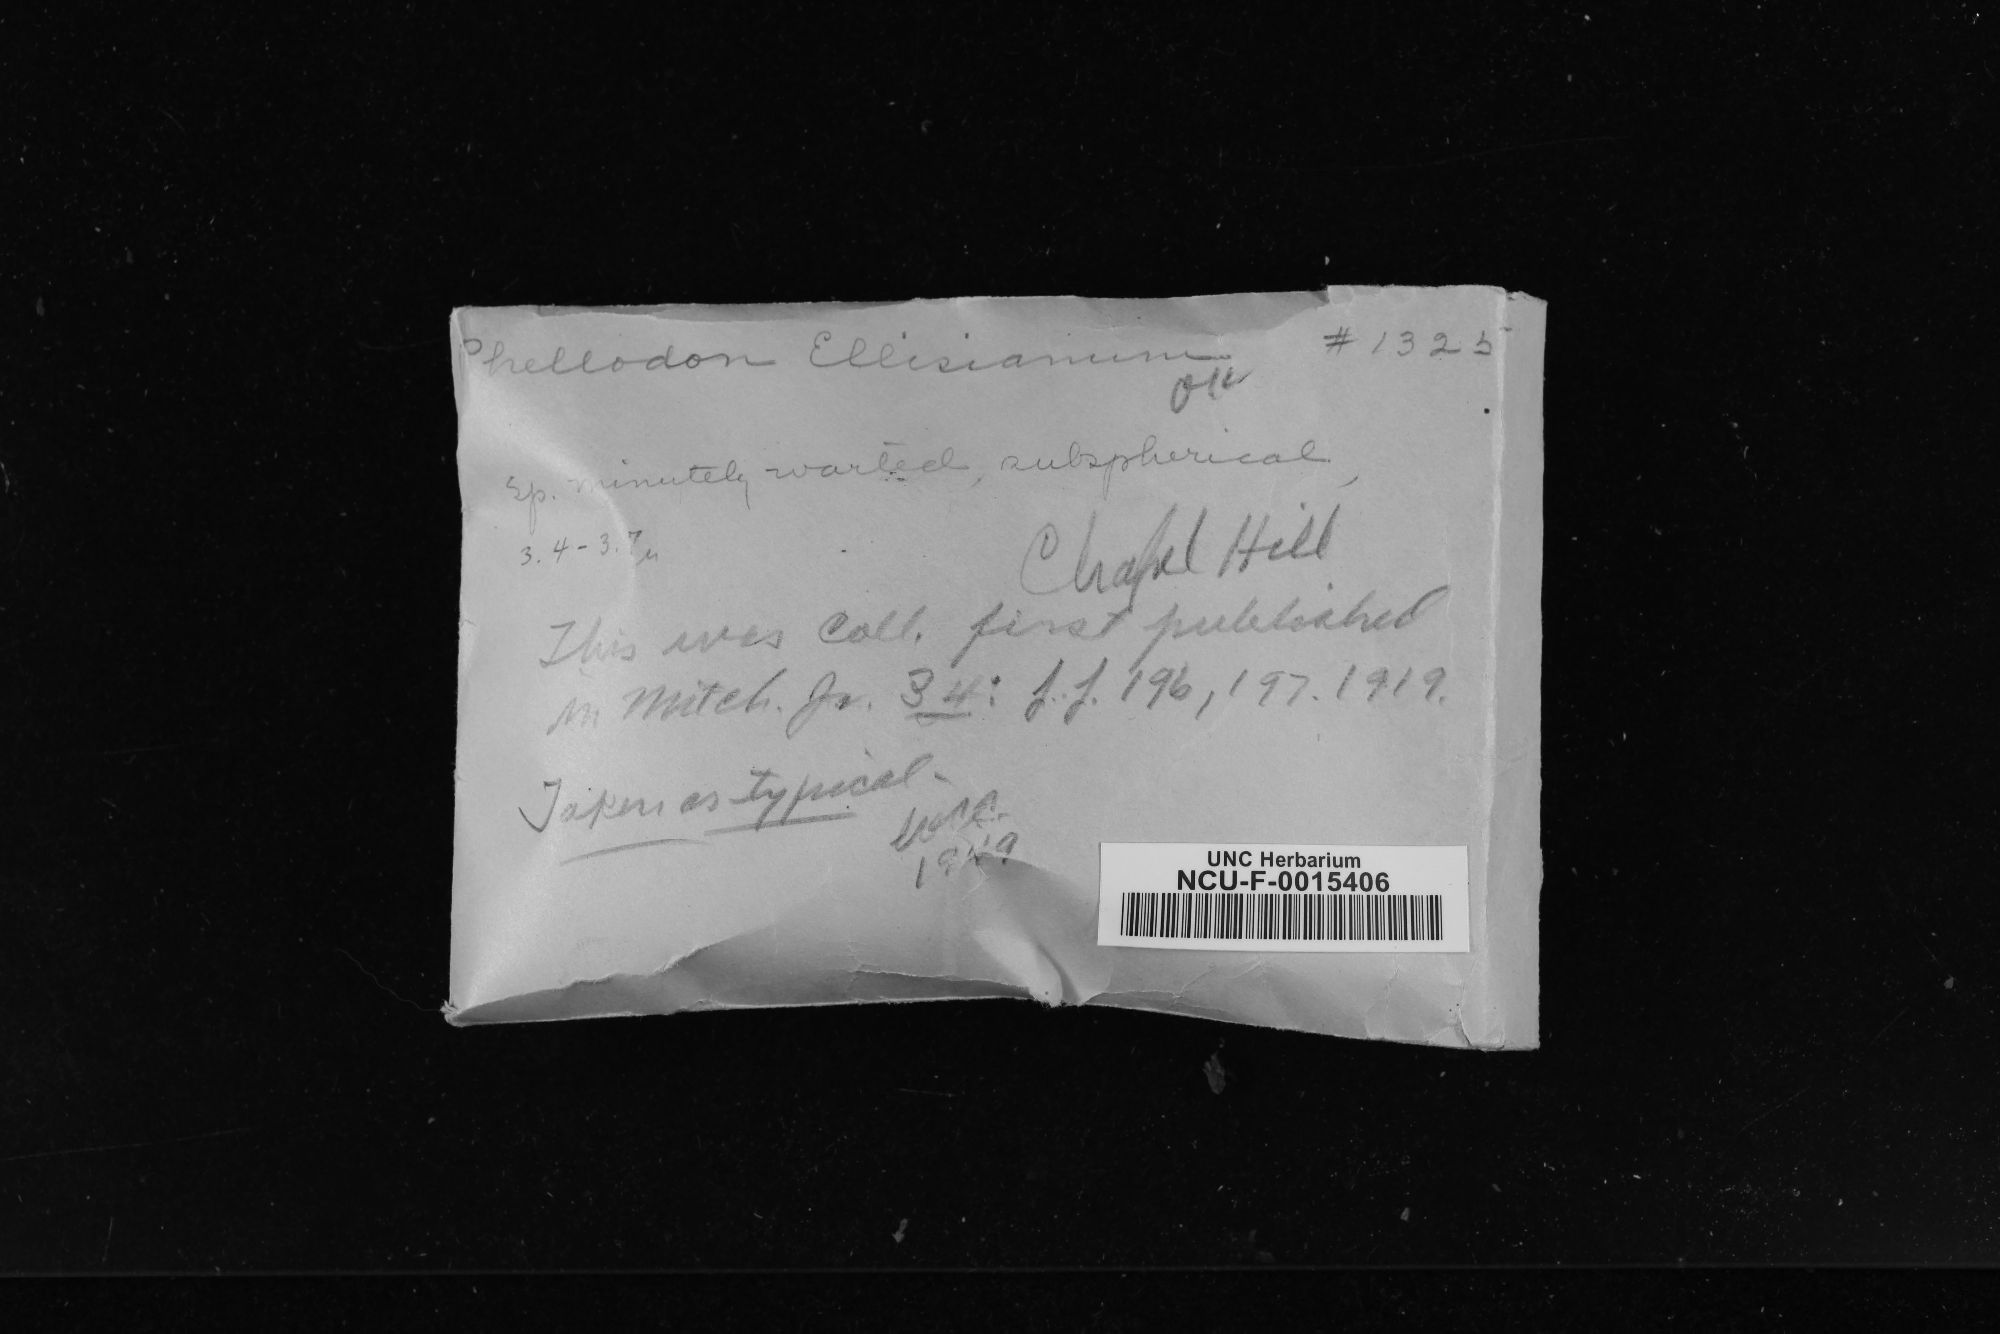 Phellodon Ellisianum # 1325
OK
Sp. minutely warted, subspherical,
3.4 - 3.7µ
Chapel Hill
This was coll. first published
in Mitch. Jr. 34: f.f. 196, 197. 1919.
Taken as typical -
1949
UNC Herbarium
NCU-F-0015406